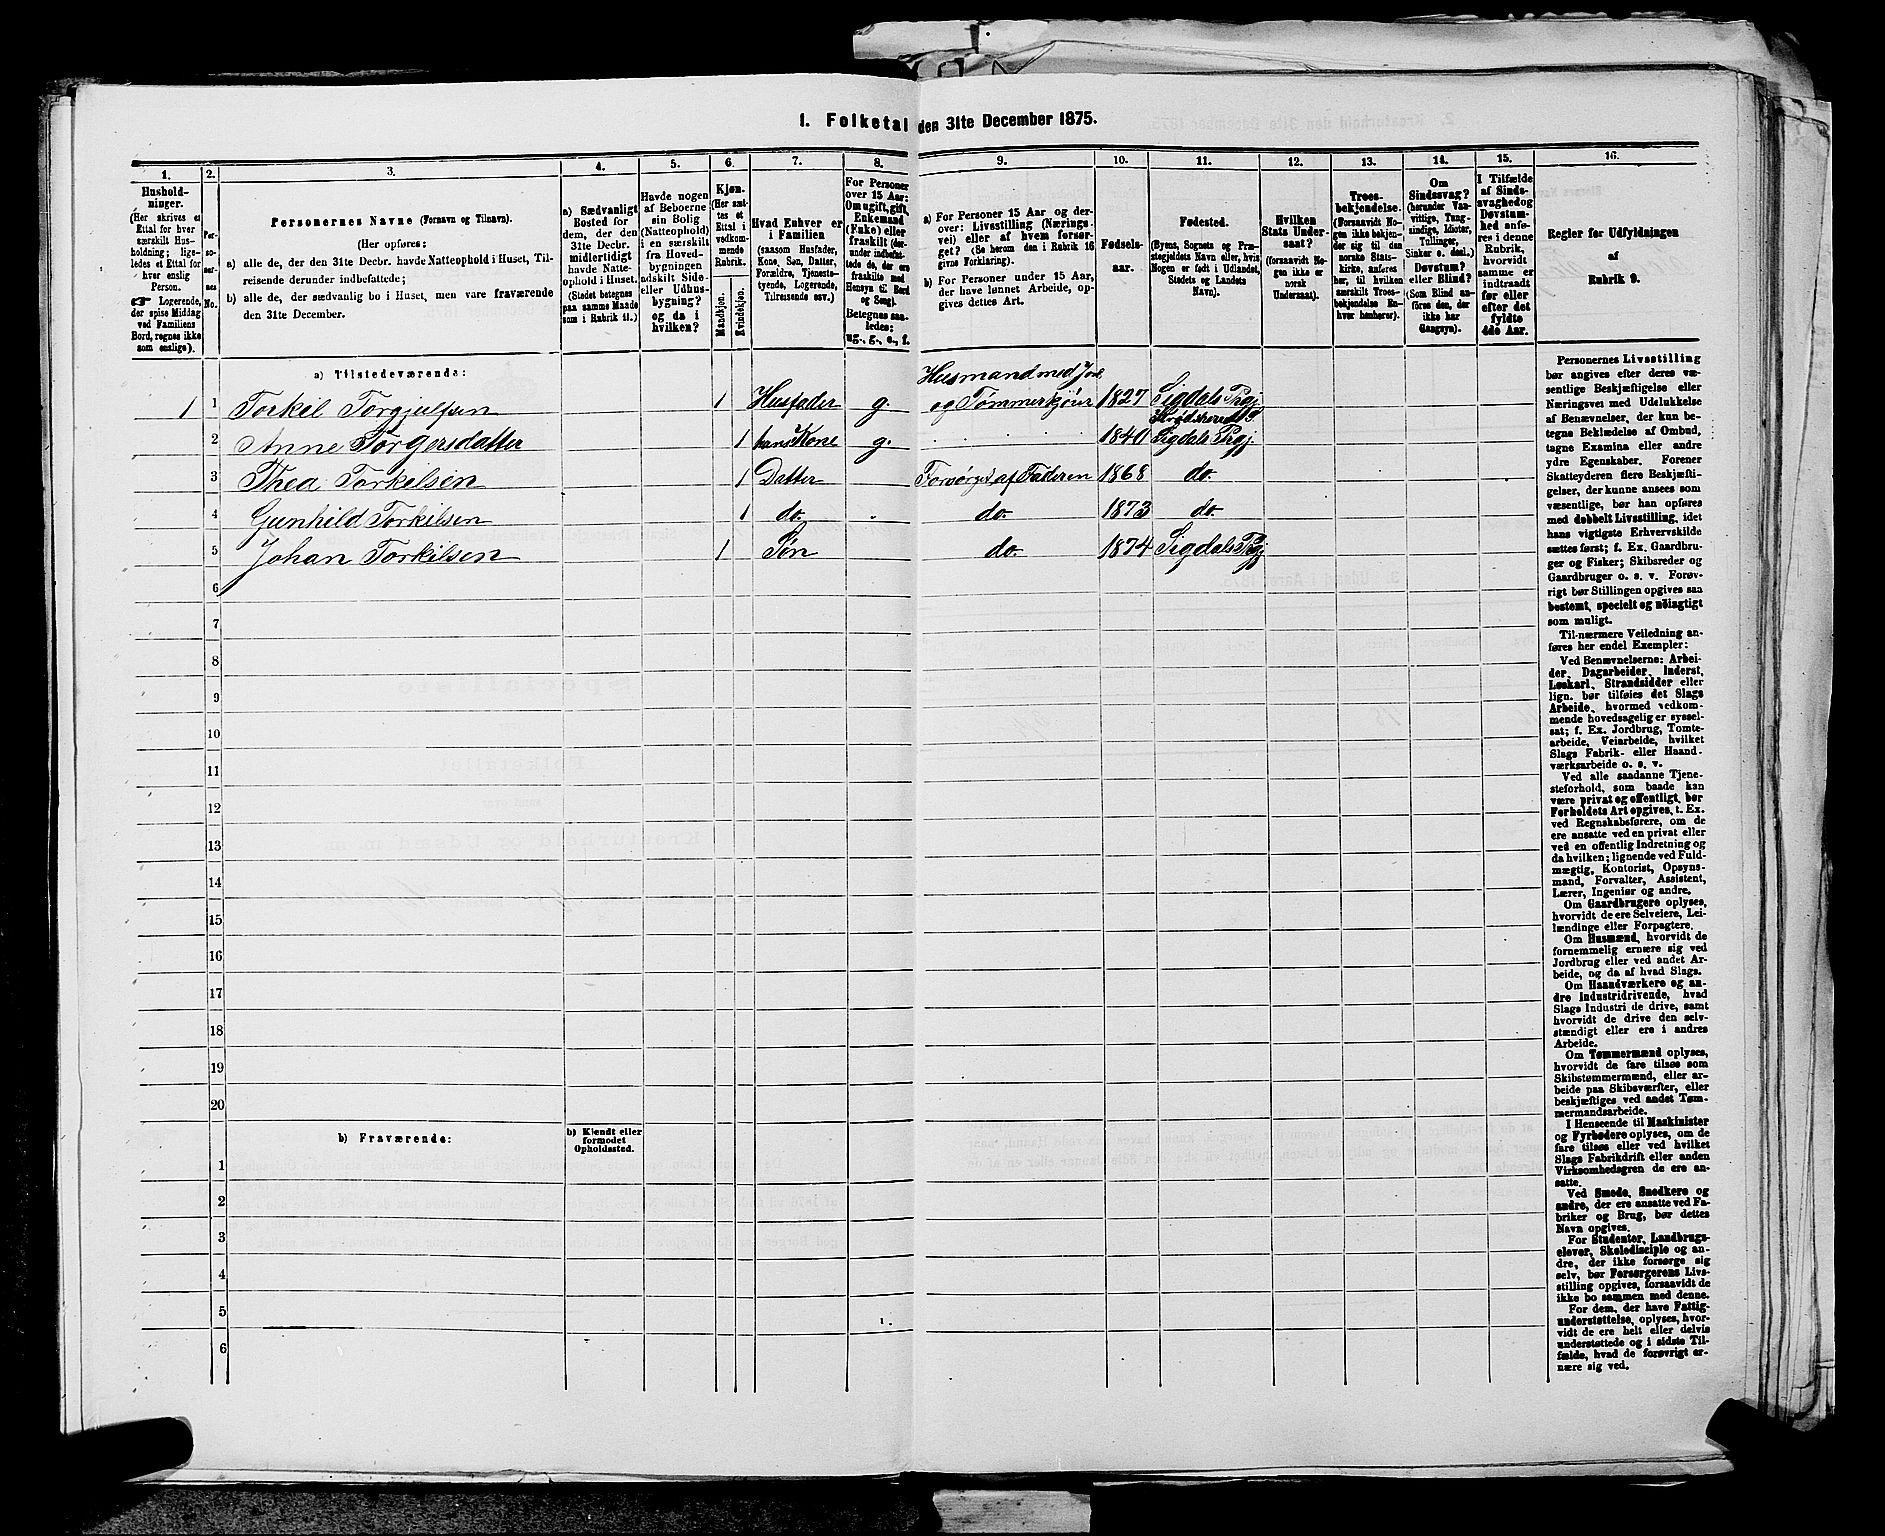 1. Folketal den 31te December 1875.
1. 2. 3. 4. 5. 6. 7. 8. 9. 10. 11. 12. 13. 14. 15. 16.
Hushold-
ninger.
(Her skrives et
Ettal for hver
særskilt Hus-
holdning; lige-
ledes et Ettal for
hver enslig
Person.
☛ Logerende,
der spise Middag
ved Familiens
Bord, regnes ikke
som enslige).
Per-
so-
ner-
nes
No.
Personernes Navne (Fornavn og Tilnavn).
(Her opføres:
a) alle de, der den 31te Decbr. havde Natteophold i Huset, Til-
reisende derunder indbefattede;
b) alle de, der sædvanlig bo i Huset, men vare fraværende
den 31te December.
a) Sædvanligt
Bosted for
dem, der den
31te Decbr.
midlertidigt
havde Natte-
ophold i Huset.
(Stedet betegnes
paa samme Maade
som i Rubrik 11.)
Havde nogen
af Beboerne
sin Bolig
(Natteophold)
i en særskilt
fra Hoved-
bygningen
adskilt Side-
eller Udhus-
bygning?
og da i
hvilken?
Kjøn.
(Her sæt-
tes et
Ettal i
vedkom-
mende
Rubrik.
Mandkjøn.
Kvindekjøn.
Hvad Enhver er
i Familien
(saasom Husfader,
Kone, Søn, Datter,
Forældre, Tjeneste-
tyende, Logerende,
Tilreisende osv.)
For Personer
over 15 Aar:
Om ugift, gift,
Enkemand
(Enke) eller
fraskilt (der-
under indbefat-
tede de, der ere
fraskilte med
Hensyn til Bord
og Seng).
Betegnes saa-
ledes:
ug., g., e., f.
a) For Personer 15 Aar og der-
over: Livsstilling (Nærings-
vei) eller af hvem forsør-
get? (Se herom den i Rubrik 16
givne Forklaring).
b) For Personer under 15 Aar,
der have lønnet Arbeide, op-
gives dettes Art.
Fødsels-
aar.
Fødested.
(Byens, Sognets og Præ-
stegjeldets Navn eller, hvis
Nogen er født i Udlandet,
Stedets og Landets
Navn).
Hvilken
Stats Under-
saat?
(forsaavidt No-
gen ikke er
norsk
Undersaat).
Troes-
bekjendelse.
(Forsaavidt No-
gen ikke bekjen-
der sig til den
norske Stats-
kirke, anføres
her, til hvilken
særskilt Troes-
bekjendelse En-
hver henhører).
Om
Sindssvag?
(herunder Van-
vittige, Tung-
sindige, Idioter,
Tullinger,
Sinker o. desl.)
Døvstum?
eller Blind?
(Som Blind an-
føres den, der
ikke har
Gangsyn).
I Tilfælde
af Sinds-
svaghed og
Døvstum-
hed anfø-
res i denne
Rubrik,
hvorvidt
samme er
indtraadt
før eller
efter det
fyldte
4de Aar.
Regler for Udfyldningen
af
Rubrik 9.
a) Tilstedeværende:
Husmand med Jord
1 1 Torkel Torgiulfsen 1 Husfader g. og Tømmerkjører 1827 Sigdals Prgj.
2 Anne Torgersdatter 1 hans Kone g. 1840 Sigdals Prgj.
3 Thea Torkilsen 1 Datter Forsørget af Faderen 1868 do.
4 Gunhild Torkilsen 1 do. do. 1873 do.
5 Johan Torkilsen 1 Søn do. 1874 Sigdals Prgj.
6
7
8
9
10
11
12
13
14
15
16
17
18
19
20
b) Fraværende:
b) Kjendt eller
formodet
Opholdssted.
1
2
3
4
5
6
Personernes Livsstilling
bør angives efter deres væ-
sentlige Beskjæftigelse eller
Næringsvei med Udelukkelse
af Benævnelser, der kun be-
tegne Beklædelse af Ombud,
tagne Examina eller andre
ydre Egenskaber. Forener
Skatteyderen flere Beskjæfti-
gelser, der kunne ansees som
væsentlige, bør han opføres
med dobbelt Livsstilling, idet
hans vigtigste Erhvervskilde
sættes først; f. Ex. Gaardbru-
ger og Fisker; Skibsreder og
Gaardbruger o. s. v. Forøv-
rigt bør Stillingen opgives saa
bestemt, specielt og nöiagtigt
som muligt.
Til nærmere Veiledning an-
føres her endel Exempler:
Ved Benævnelserne: Arbei-
der, Dagarbeider, Inderst,
Løskarl, Strandsidder eller
lign. bør tilføies det Slags
Arbeide, hvormed vedkom-
mende hovedsagelig er syssel-
sat; f. Ex. Jordbrug, Tomte-
arbeide, Veiarbeide, hvilket
Slags Fabrik- eller Haand-
værksarbeide o. s. v.
Ved alle saadanne Tjene-
steforhold, som baade kan
være privat og offentligt, bør
Forholdets Art opgives, t. Ex.
ved Regnskabsførere, om de
ere ansatte ved en privat eller
ved en offentlig Indretning og
da hvilken; lignende ved Fuld-
mægtig, Kontorist, Opsyns-
mand, Forvalter, Assistent,
Lærer, Ingeniør og andre.
Om Gaardbrugere oplyses,
hvorvidt de ere Selveiere, Lei-
lændinge eller Forpagtere.
Om Husmænd, hvorvidt de
fornemmelig ernære sig ved
Jordbrug eller ved andet Ar-
beide, og da af hvad Slags.
Om Haandværkere og an-
dre Industridrivende, hvad
Slags Industri de drive, samt
hvorvidt de drive den selv-
stændigt eller ere i andres
Arbeide.
Om Tømmermænd oplyses,
hvorvidt de fare tilsøs som
Skibstømmermænd, eller ar-
beide paa Skibsværfter, eller
beskjæftiges ved andet Tøm-
mermandsarbeide.
I Henseende til Maskinister
og Fyrbødere oplyses, om de
fare tilsøs eller ved hvilket
Slags Fabrikdrift eller anden
Virksomhedsgren de ere an-
satte.
Ved Smede, Snedkere og
andre, der ere ansatte ved Fa-
briker og Brug, bør dettes
Navn opgives.
For Studenter, Landbrugs-
elever, Skoledisciple og an-
dre, der ikke forsørge sig
selv, bør Forsørgerens Livs-
stilling opgives, forsaavidt de
ikke bo sammen med denne.
For dem, der have Fattig-
understøttelse, oplyses, hvor-
vidt de ere helt eller delvis
understøttede og i sidste Til-
fælde, hvad de forøvrigt er-
nære sig ved.